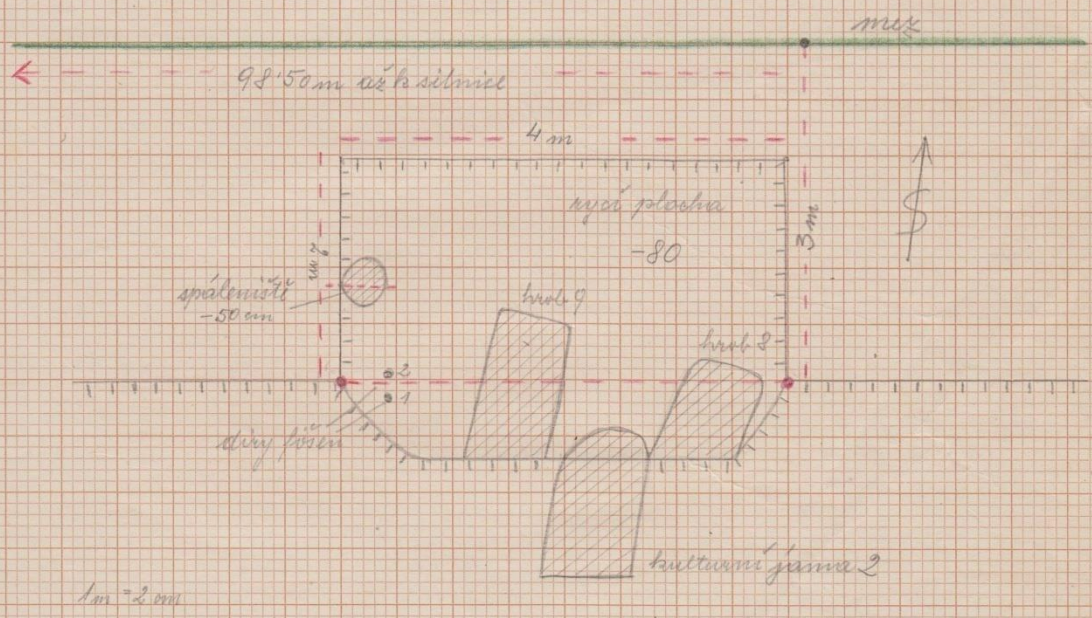 mez
98·50 m až k silnice
4 m
rycí plocha
-80
S
3 m
2 m
spáleniště
-50 cm
hrob 9
hrob 8
2
1
díry
kulturní jáma 2
1 m = 2 cm